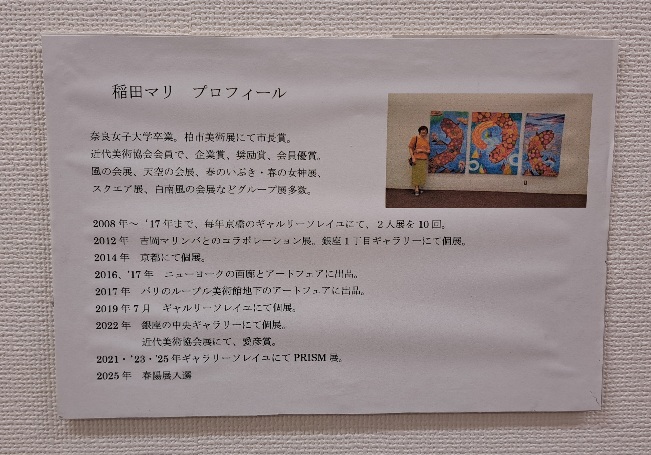 稲田マリ　プロフィール
奈良女子大学卒業。柏市美術展にて市長賞。
近代美術協会会員で、企業賞、奨励賞、会員優賞。
風の会展、天空の会展、春のいぶき・春の女神展、
スクエア展、白南風の会展などグループ展多数。
2008年～ ‘17年まで、毎年京橋のギャルリーソレイユにて、２人展を10回。
2012年　吉岡マリンバとのコラボレーション展。銀座１丁目ギャラリーにて個展。
2014年　京都にて個展。
2016、’17年　ニューヨークの画廊とアートフェアに出品。
2017年　パリのルーブル美術館地下のアートフェアに出品。
2019年７月　ギャルリーソレイユにて個展。
2022年　銀座の中央ギャラリーにて個展。
近代美術協会展にて、愛彦賞。
2021・’23・’25年ギャラリーソレイユにてPRISM展。
2025年　春陽展入選